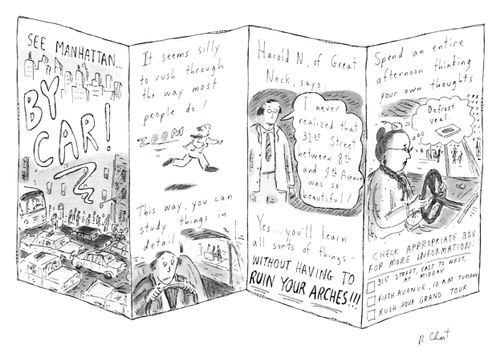 SEE MANHATTAN...
BY
CAR!
It seems silly
to rush through
the way most
people do!
ZOOM
This way, you can
study things in
detail.
Harold N., of Great
Neck, says:
I never
realized that
31st Street
between 8th
and 9th Avenue
was so
beautiful!
Yes... you'll learn
all sorts of things-
WITHOUT HAVING TO
RUIN YOUR ARCHES!!!
Spend an entire
afternoon thinking
your own thoughts
Defrost
veal.
CHECK APPROPRIATE BOX
FOR MORE INFORMATION:
31ST STREET, EAST TO WEST,
AT MIDDAY
FIFTH AVENUE, 10 A.M. TUESDAY
RUSH HOUR GRAND TOUR
R. Chast